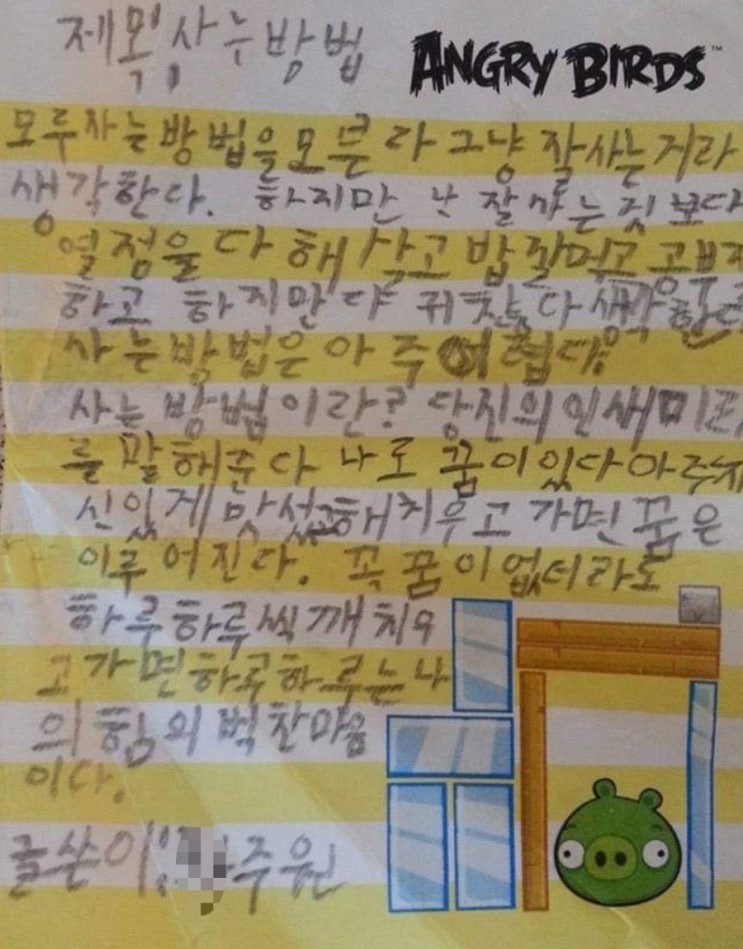 제목, 사는방법
ANGRY BIRDS™
모두사는방법을모른다 그냥잘사는거라
생각한다. 하지만 난 잘사는것보다
열점을 다해 살고 밥잘먹고 공부
하고 하지만 다 귀찮다 생각한다
사는방법은아주 쉽다.
사는 방법이란? 당신의인새미
를말해준다 나도 꿈이있다아주
신있게 맛서해치우고가면꿈은
이루어진다. 꼭 꿈이없더라도
하루하루씩깨치우
고가면하루하루는나
의 힘의벅찬마음
이다.
글쓴이: 주원